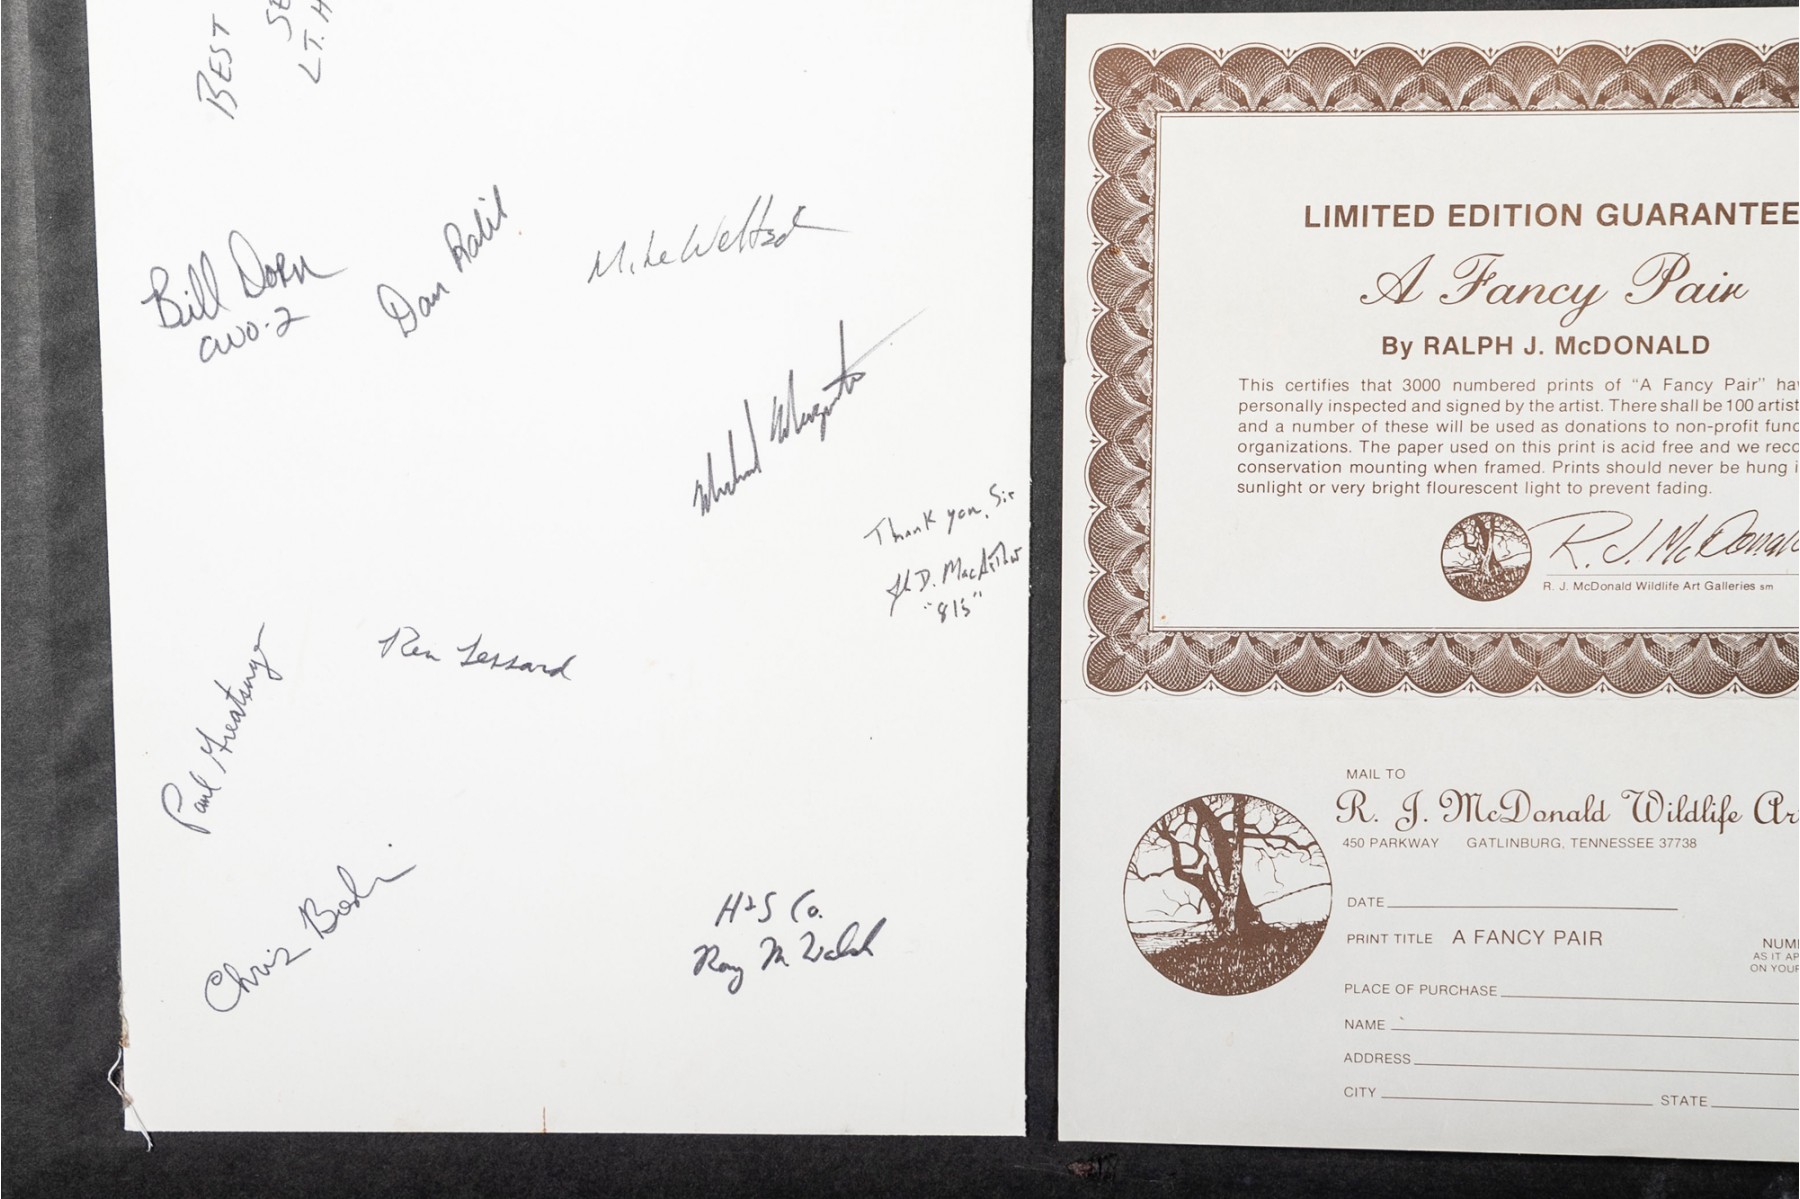 BEST
LT. H
Bill Dorn
CWO-2
Dan
Mike
Thank you, Sir
D. MacArthur
"815"
Ren Lessard
Paul
Chris
H+S Co.
Ray M Walsh
LIMITED EDITION GUARANTEE
A Fancy Pair
By RALPH J. McDONALD
This certifies that 3000 numbered prints of "A Fancy Pair" hav
personally inspected and signed by the artist. There shall be 100 artist
and a number of these will be used as donations to non-profit func
organizations. The paper used on this print is acid free and we reco
conservation mounting when framed. Prints should never be hung i
sunlight or very bright flourescent light to prevent fading.
R. J. McDonald
R. J. McDonald Wildlife Art Galleries sm
MAIL TO
R. J. McDonald Wildlife Ar
450 PARKWAY GATLINBURG, TENNESSEE 37738
DATE
PRINT TITLE A FANCY PAIR
NUM
AS IT AP
ON YOUR
PLACE OF PURCHASE
NAME
ADDRESS
CITY STATE